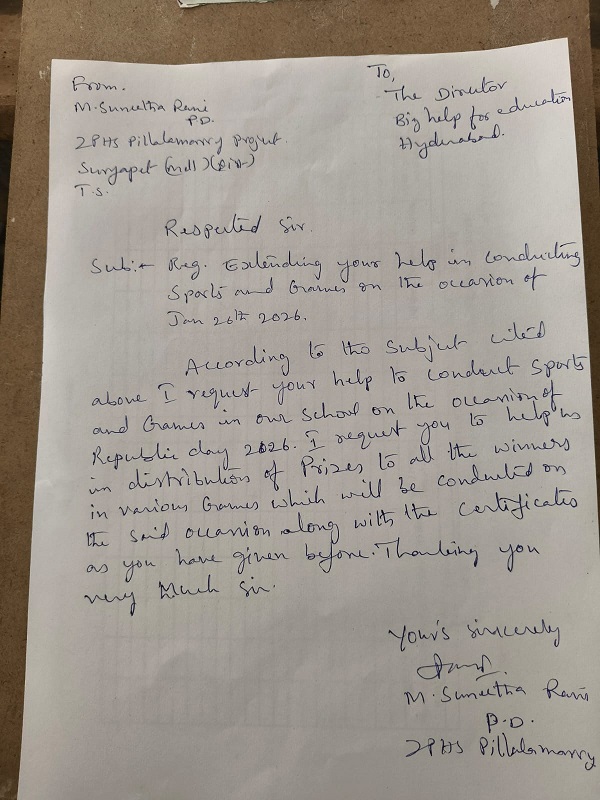 From.
M. Suneetha Rani
P.D.
ZPHS Pillalamarry Project.
Suryapet (mdl) (Dist)
T.S.
To,
The Director
Big help for education
Hyderabad.
Respected Sir.
Sub:- Reg. Extending your help in conducting
Sports and Games on the occasion of
Jan 26th 2026.
According to the Subject cited
above I request your help to conduct sports
and Games in our School on the occasion of
Republic day 2026. I request you to help us
in distribution of Prizes to all the winners
in various Games which will be conducted on
the said occasion along with the certificates
as you have given before. Thanking you
very Much Sir.
Your's sincerely
M. Suneetha Rani
P.D.
ZPHS Pillalamarry